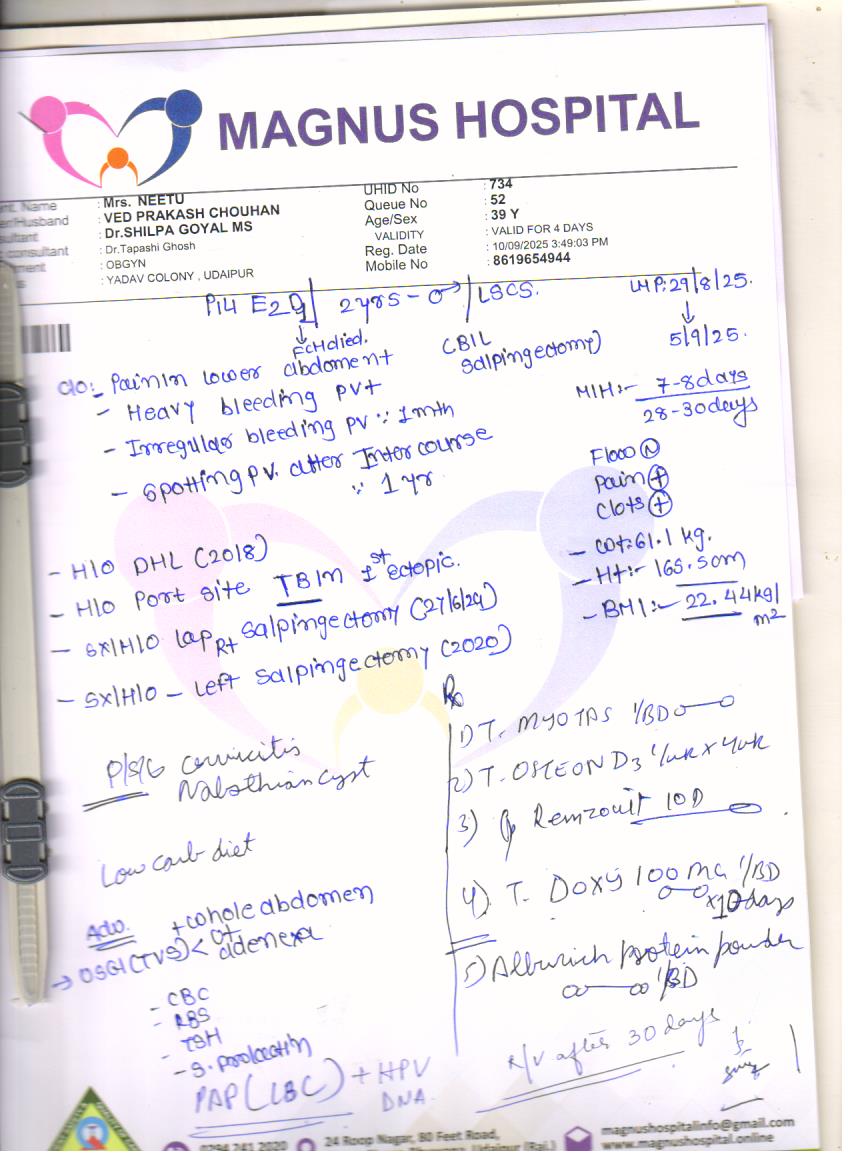 MAGNUS HOSPITAL
Name : Mrs. NEETU
Husband : VED PRAKASH CHOUHAN
: Dr.SHILPA GOYAL MS
consultant : Dr.Tapashi Ghosh
: OBGYN
: YADAV COLONY , UDAIPUR
UHID No : 734
Queue No : 52
Age/Sex : 39 Y
VALIDITY : VALID FOR 4 DAYS
Reg. Date : 10/09/2025 3:49:03 PM
Mobile No : 8619654944
P1L1 E2 | 2yrs - ♂ | LSCS.
LMP:29/8/25.
↓
5/9/25.
↓
FCH died.
(BIL
Salpingectomy)
C/O:- Pain in lower abdoment
- Heavy bleeding PV+
- Irregular bleeding PV ∵ 1mth
- Spotting PV. after Intercourse
∵ 1 yr
M/H:- 7-8days
28-30days
Flow (N)
Pain (+)
Clots (+)
- wt:61.1 kg.
- Ht:- 165.5cm
- BMI:- 22.44kg/m2
- H/O DHL (2018)
- H/O Port site TB in 1st ectopic.
- SX/H/O lap Rt salpingectomy (27/6/24)
- SX/H/O - Left salpingectomy (2020)
P/S/G cervicitis
Nabothian cyst
Low carb diet
Adv.
→ USG (TVS) < + whole abdomen
adenexa
- CBC
- RBS
- TSH
- S. prolactin
PAP (LBC) + HPV
DNA.
Rx
1) T. MYOTAS 1/BD
2) T. OSTEON D3 1/wk x 4wk
3) 10D
4) T. DOXY 100 mg 1/BD
x10days
5) Alburich protein powder
1/BD
R/V after 30 days
0294 241 2020
24 Roop Nagar, 80 Feet Road,
Udaipur (Raj.)
magnushospitalinfo@gmail.com
www.magnushospital.online